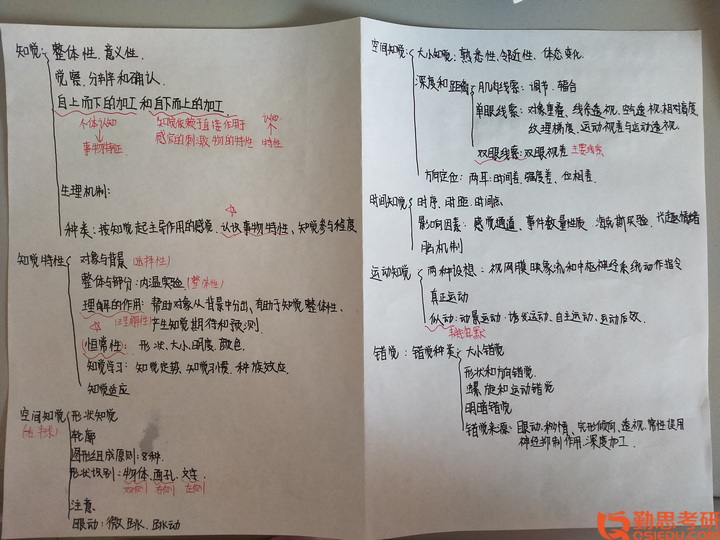 知觉: 整体性、意义性.
觉察、分辨和确认.
自上而下的加工和自下而上的加工.
个体认知 知觉依赖于直接作用于 认知
事物特征 感觉的刺激物的特性 特性
生理机制:
种类: 按知觉起主导作用的感觉、认识事物特性、知觉参与程度
知觉特性 对象与背景 (选择性)
整体与部分: 内温实验 (整体性)
理解的作用: 帮助对象从背景中分出、有助于知觉整体性、
(理解性) 产生知觉期待和预测
恒常性: 形状、大小、明度、颜色.
知觉学习: 知觉定势、知觉习惯、种族效应.
知觉适应
空间知觉 形状知觉
轮廓
图形组成原则: 8种.
形状识别: 物体、面孔、文字.
双侧 右侧 左侧
注意.
眼动: 微跳、跳动
空间知觉: 大小知觉: 熟悉性、邻近性、体态变化.
深度和距离 肌肉线索: 调节、辐合
单眼线索: 对象重叠、线条透视、空气透视、相对高度
纹理梯度、运动视差与运动透视.
双眼线索: 双眼视差 主要线索
方向定位: 两耳: 时间差、强度差、位相差.
时间知觉 时序、时距、时间点.
影响因素: 感觉通道、事件数量性质、海克斯实验、兴趣情绪
脑机制
运动知觉 两种设想: 视网膜映象流和中枢神经系统动作指令
真正运动
似动: 动景运动、诱发运动、自主运动、运动后效.
错觉: 错觉种类 大小错觉
形状和方向错觉.
螺旋和运动错觉
明暗错觉
错觉来源: 眼动、移情、完形倾向、透视、常性使用
神经抑制作用、深度加工.
勤思考研
QSIEDU.COM